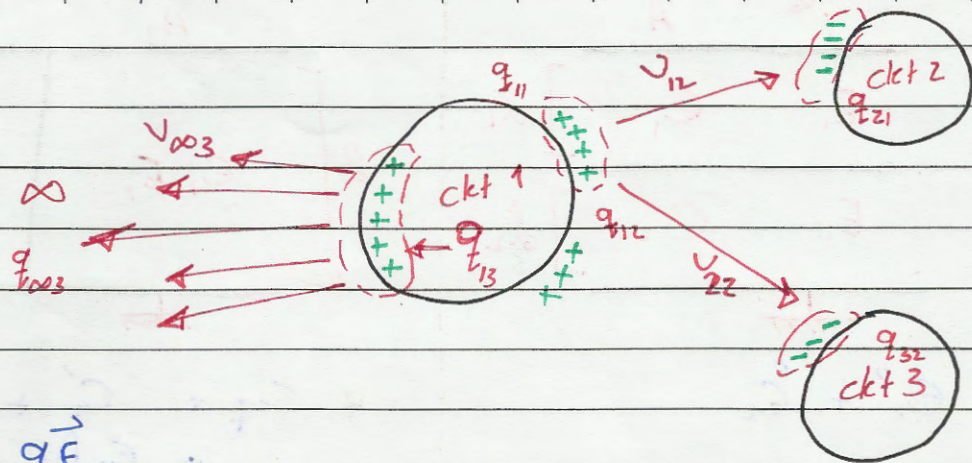 q11
υ12
ckt 2
q21
υ∞3
∞
ckt 1
q13
q12
q∞3
υ22
q32
ckt 3
qE⃗